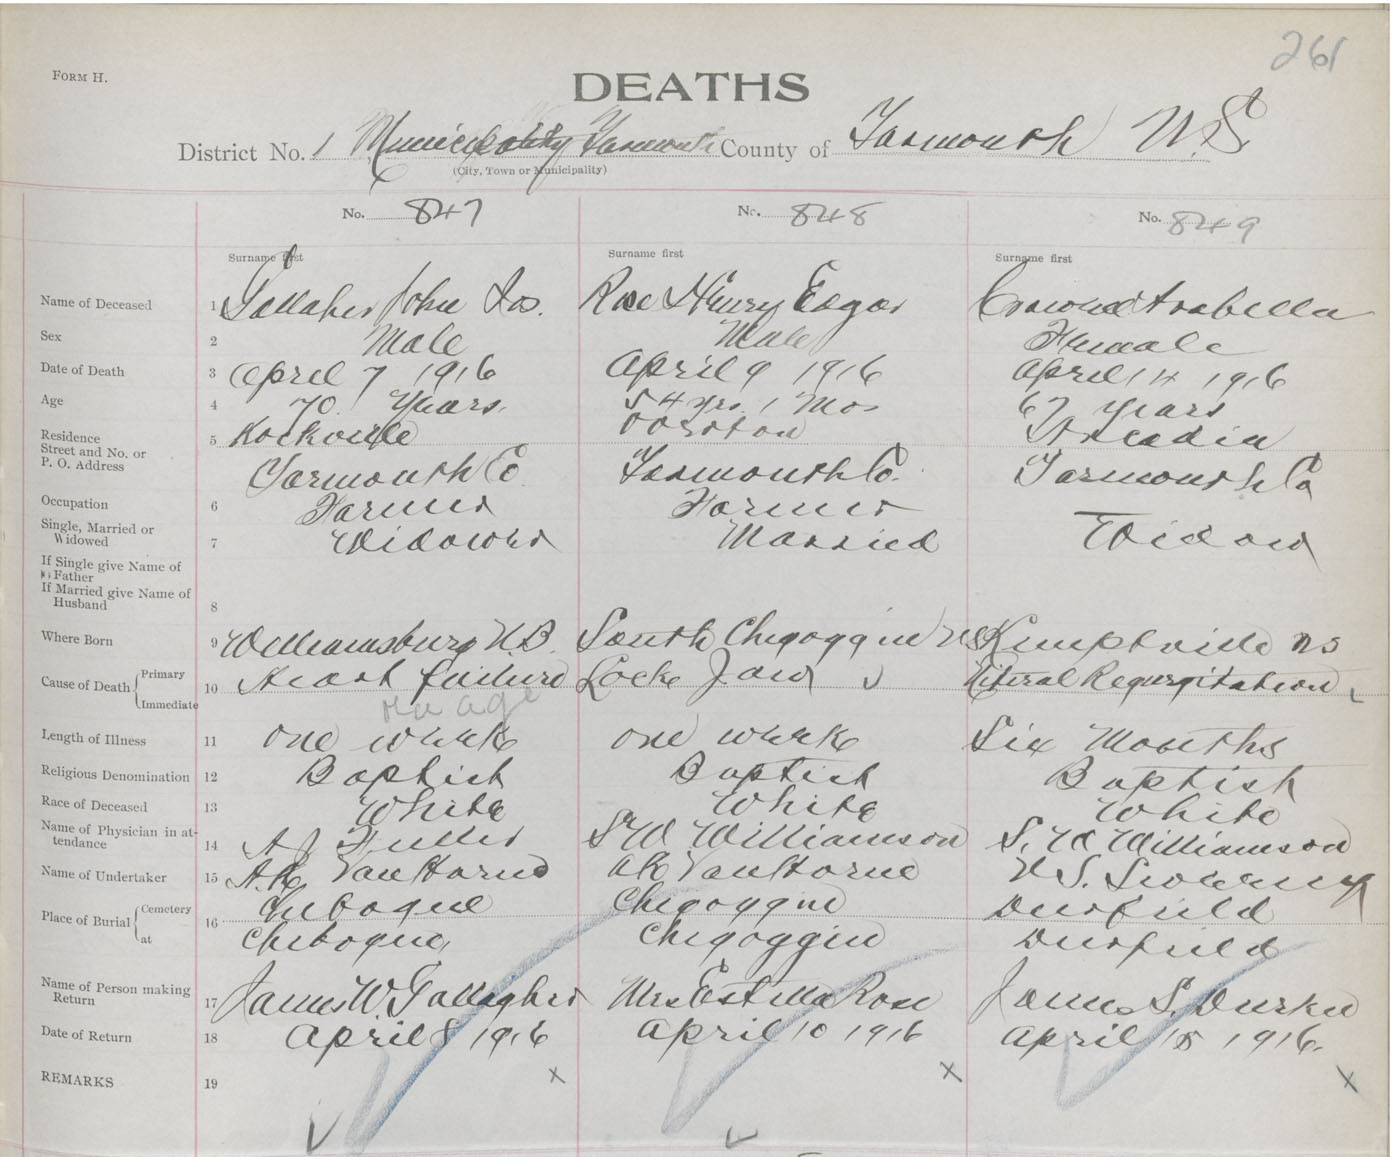 261
FORM H.
DEATHS
District No. 1 Municipality Yarmouth County of Yarmouth N.S.
(City, Town or Municipality)
No. 847 No. 848 No. 849
Surname first Surname first Surname first
Name of Deceased 1 Gallaher John Jas. Rose Henry Edgar Arabella
Sex 2 Male Male Female
Date of Death 3 April 7 1916 April 9 1916 April 14 1916
Age 4 70 Years. 54 yrs 1 Mos 67 Years
Residence Street and No. or P. O. Address 5 Rockville Arcadia
Yarmouth Co. Yarmouth Co. Yarmouth Co
Occupation 6 Farmer Farmer
Single, Married or Widowed 7 Widower Married Widow
If Single give Name of Father
If Married give Name of Husband 8
Where Born 9 Williamsburg N.B. South Chegoggin NS Kemptville NS
Cause of Death Primary 10 Heart failure Locke Jaw Miteral Regurgitation
Immediate old age
Length of Illness 11 One week one week Six Months
Religious Denomination 12 Baptist Baptist Baptist
Race of Deceased 13 White White White
Name of Physician in attendance 14 A J Fuller S W Williamson S. W Williamson
Name of Undertaker 15 A.K. VanHorne AK VanHorne V S. Sweeney
Place of Burial Cemetery 16 Chebogue Chegoggin Deerfield
at Chebogue, Chegoggin Deerfield
Name of Person making Return 17 James W. Gallagher Mrs Estella Rose James S. Durkee
Date of Return 18 April 8 1916 April 10 1916 April 15 1916.
REMARKS 19 x x x